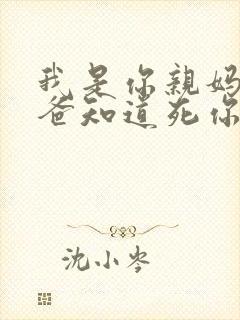 我是你親妈
爸知道死你
沈小岑